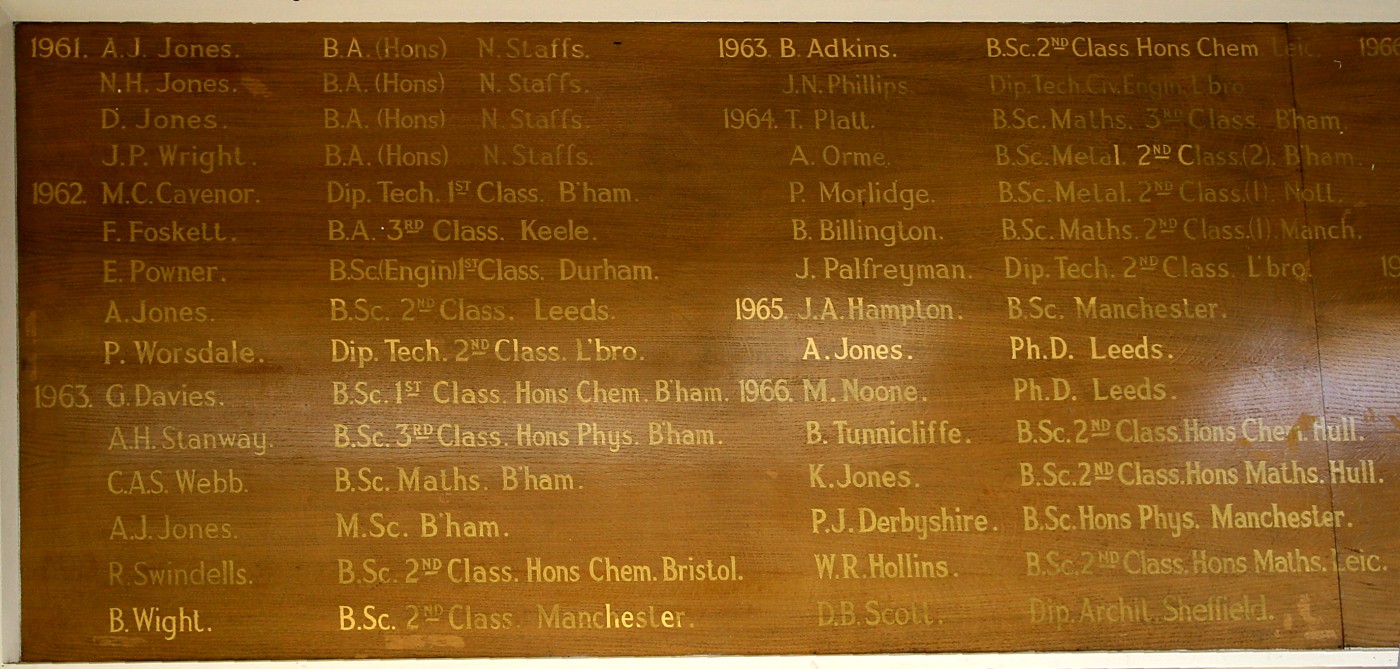 1961. A.J. Jones. B.A. (Hons) N. Staffs.
N.H. Jones. B.A. (Hons) N. Staffs.
D. Jones. B.A. (Hons) N. Staffs.
J.P. Wright. B.A. (Hons) N. Staffs.
1962. M.C. Cavenor. Dip. Tech. 1ST Class. B'ham.
F. Foskett. B.A. 3RD Class. Keele.
E. Powner. B.Sc(Engin)1ST Class. Durham.
A. Jones. B.Sc. 2ND Class. Leeds.
P. Worsdale. Dip. Tech. 2ND Class. L'bro.
1963. G. Davies. B.Sc. 1ST Class. Hons Chem. B'ham.
A.H. Stanway. B.Sc. 3RD Class. Hons Phys. B'ham.
C.A.S. Webb. B.Sc. Maths. B'ham.
A.J. Jones. M.Sc. B'ham.
R. Swindells. B.Sc. 2ND Class. Hons Chem. Bristol.
B. Wight. B.Sc. 2ND Class. Manchester.
1963. B. Adkins. B.Sc. 2ND Class Hons Chem Leic.
J.N. Phillips. Dip. Tech. Civ. Engin. L'bro
1964. T. Platt. B.Sc. Maths. 3RD Class. B'ham.
A. Orme. B.Sc. Metal. 2ND Class.(2). B'ham.
P. Morlidge. B.Sc. Metal. 2ND Class.(1). Nott.
B. Billington. B.Sc. Maths. 2ND Class.(1). Manch.
J. Palfreyman. Dip. Tech. 2ND Class. L'bro.
1965. J.A. Hampton. B.Sc. Manchester.
A. Jones. Ph.D. Leeds.
1966. M. Noone. Ph.D. Leeds.
B. Tunnicliffe. B.Sc. 2ND Class. Hons Chem. Hull.
K. Jones. B.Sc. 2ND Class. Hons Maths. Hull.
P.J. Derbyshire. B.Sc. Hons Phys. Manchester.
W.R. Hollins. B.Sc. 2ND Class. Hons Maths. Leic.
D.B. Scott. Dip. Archit. Sheffield.